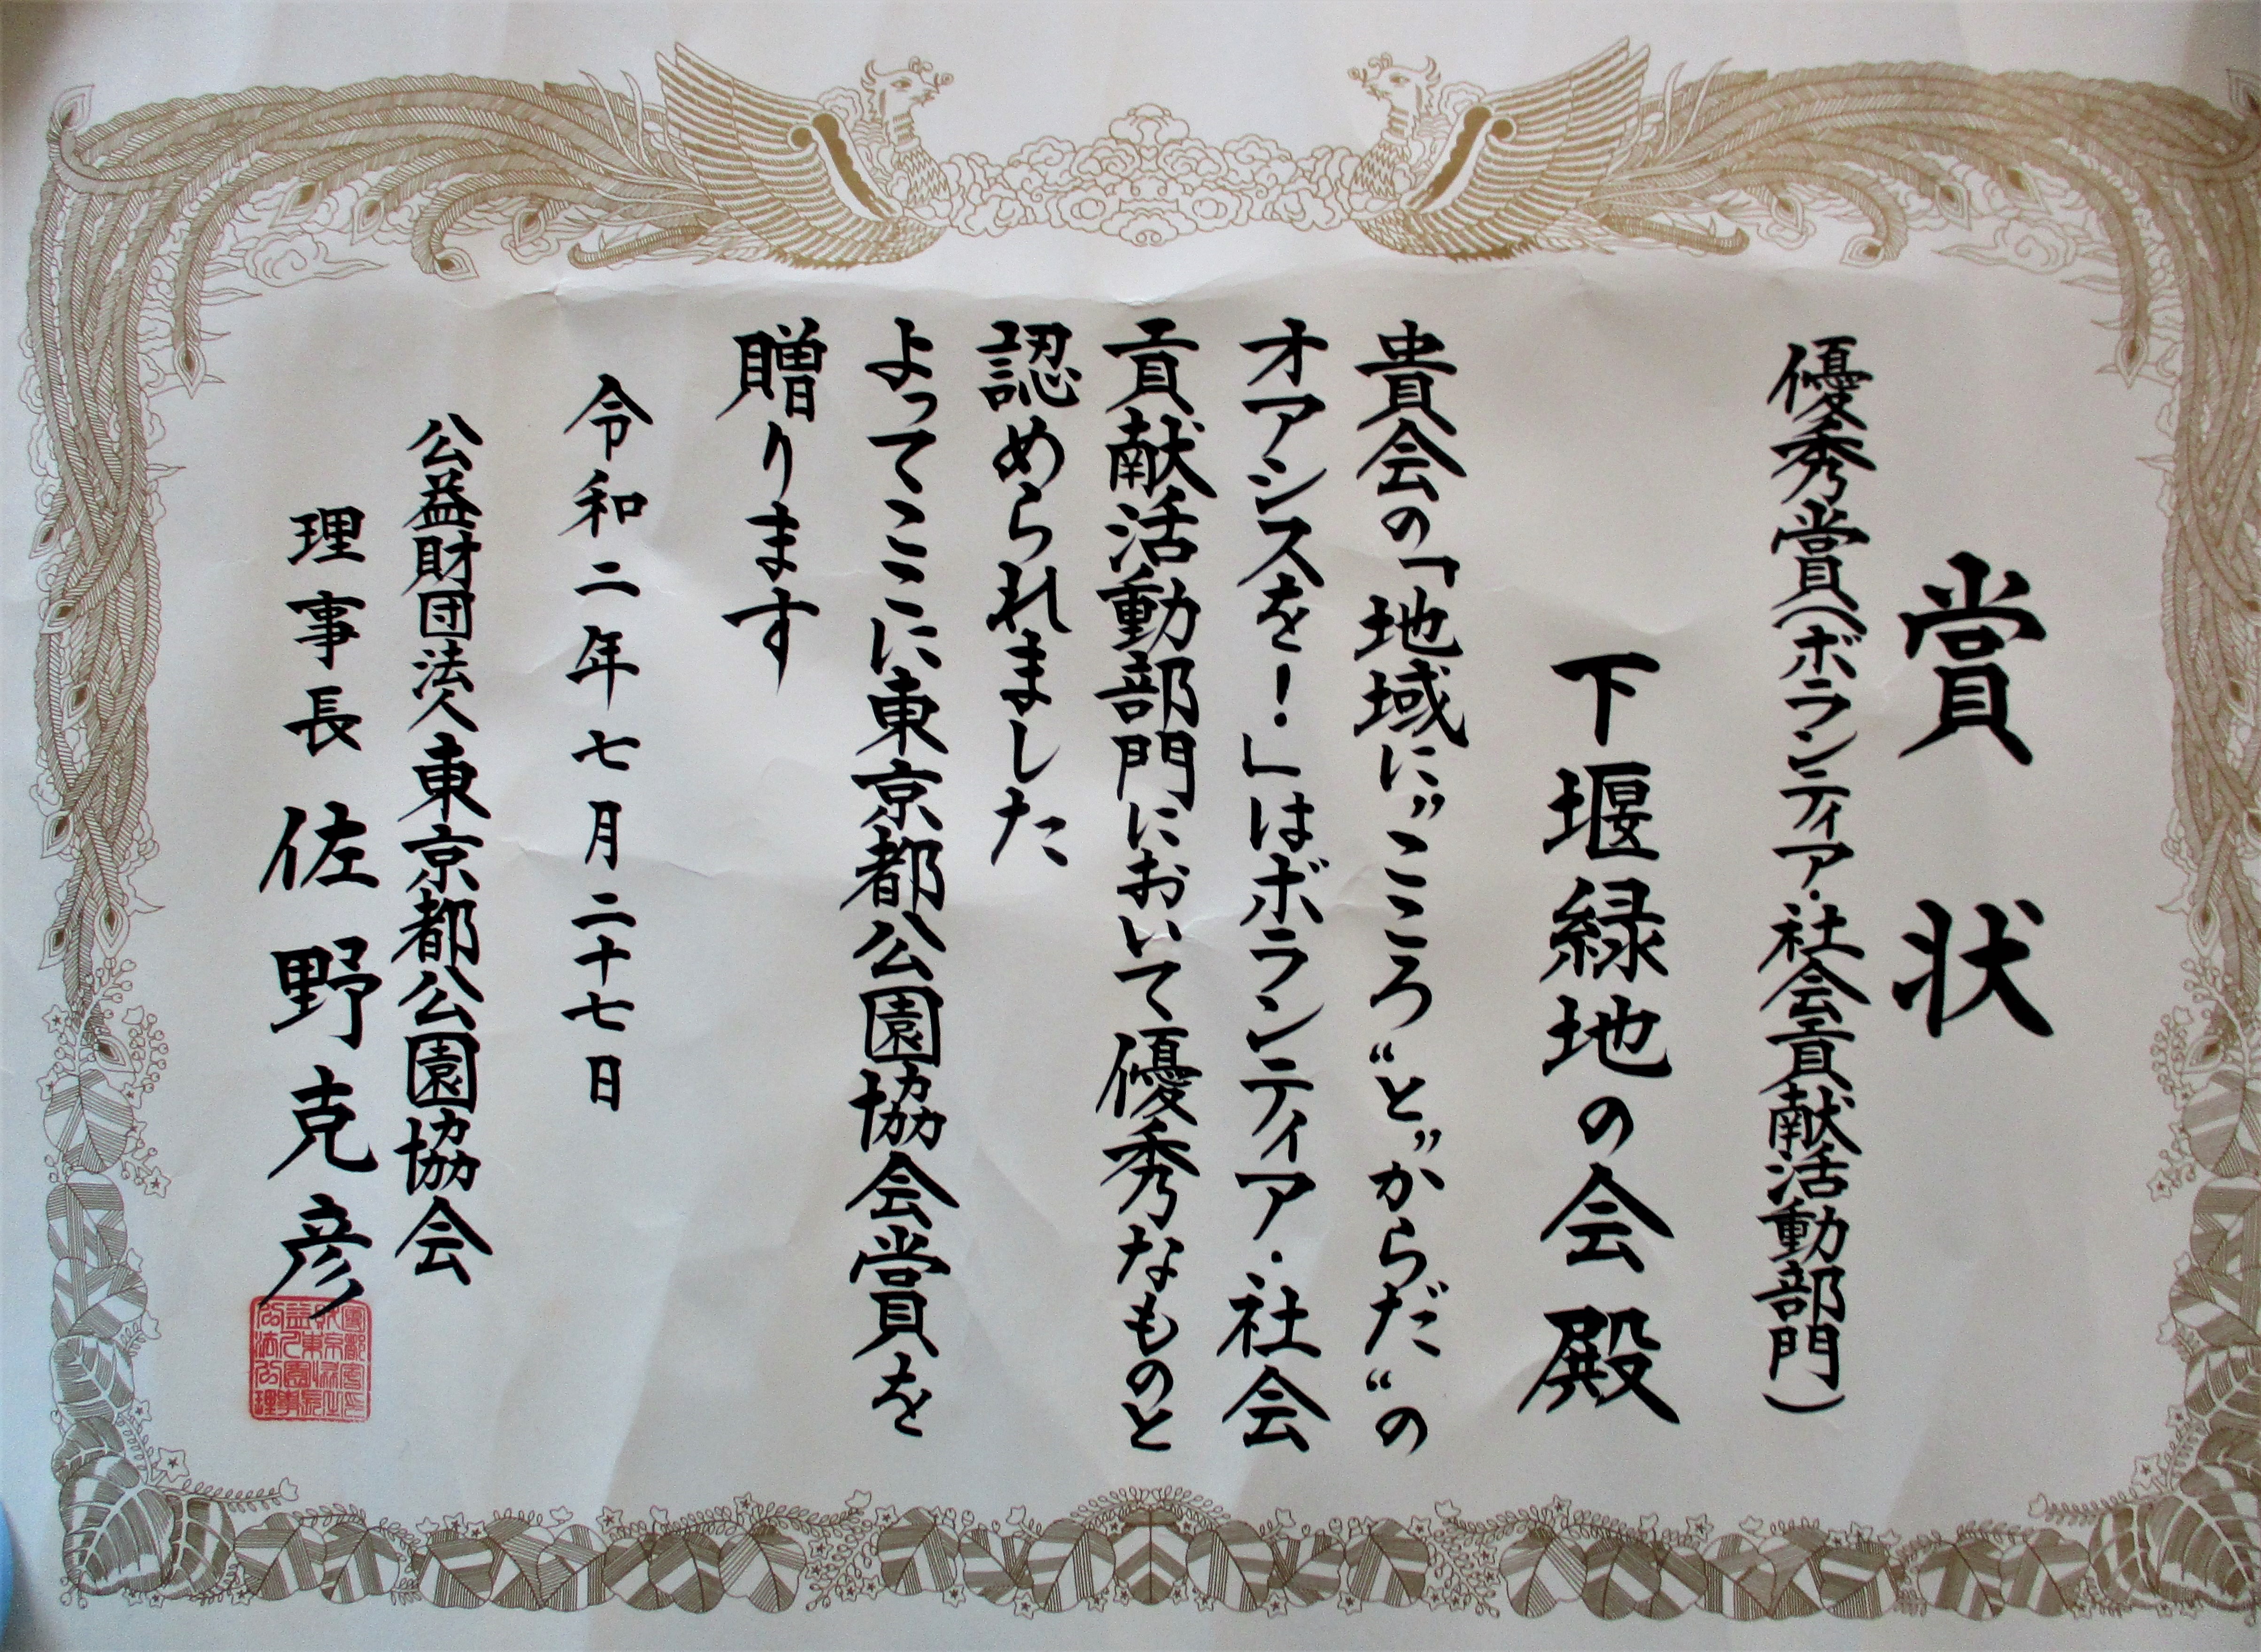 賞状
優秀賞(ボランティア・社会貢献活動部門)
下堰緑地の会殿
貴会の「地域に”こころ“と”からだ“の
オアシスを!」はボランティア・社会
貢献活動部門において優秀なものと
認められました
よってここに東京都公園協会賞を
贈ります
令和二年七月二十七日
公益財団法人東京都公園協会
理事長 佐野克彦